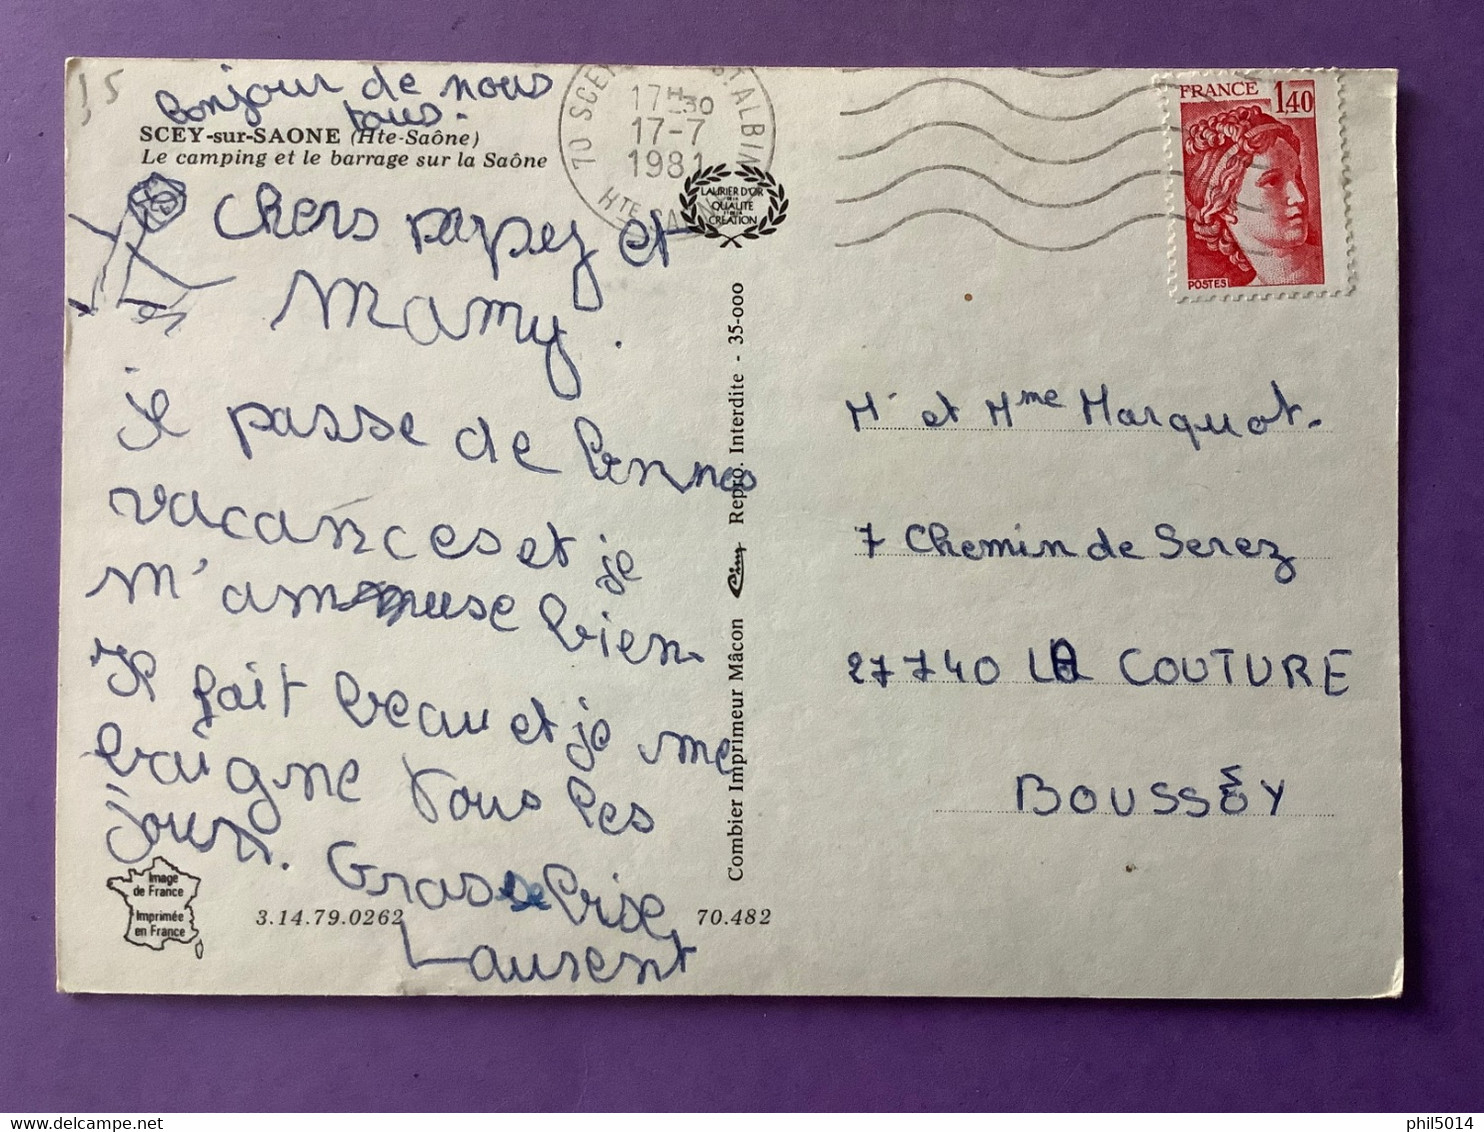 15
Bonjour de nous
tous.
SCEY-sur-SAONE (Hte-Saône)
Le camping et le barrage sur la Saône
chers papy et
Mamy.
je passe de bonnes
vacances et je
m'amuse bien.
Il fait beau et je me
baigne tous les
jours. Grosse bise
Laurent
Image
de France
Imprimée
en France
3.14.79.0262
70.482
Combier Imprimeur Mâcon Cim Repro. Interdite - 35-000
70 SCEY ST. ALBIN
17H30
17-7
1981
HTE SAONE
LAURIER D'OR
DE LA
QUALITÉ
ET DE LA
CRÉATION
FRANCE 1,40
POSTES
Mr et Mme Marquot.
7 Chemin de Serez
27740 LA COUTURE
BOUSSEY
phil5014